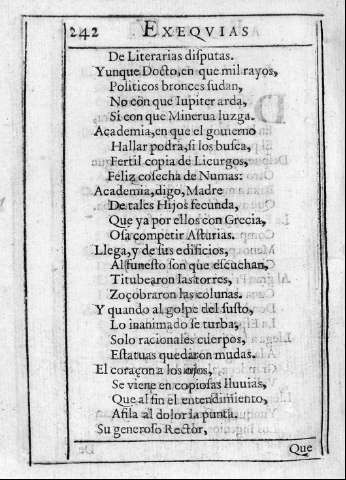 242 EXEQVIAS
De Literarias disputas.
Yunque Docto, en que mil rayos,
Politicos bronces sudan,
No con que Iupiter arda,
Si con que Minerua luzga.
Academia, en que el gouierno
Hallar podrà, si los busca,
Fertil copia de Licurgos,
Feliz cosecha de Numas:
Academia, digo, Madre
De tales Hijos fecunda,
Que ya por ellos con Grecia,
Osa competir Asturias.
Llega, y de sus edificios,
Al funesto son que escuchan,
Titubearon las torres,
Zoçobraron las colunas.
Y quando al golpe del susto,
Lo inanimado se turba,
Solo racionales cuerpos,
Estatuas quedaron mudas.
El coraçon a los ojos,
Se viene en copiosas lluuias,
Que al fin el entendimiento,
Afila al dolor la punta.
Su generoso Rector,
Que